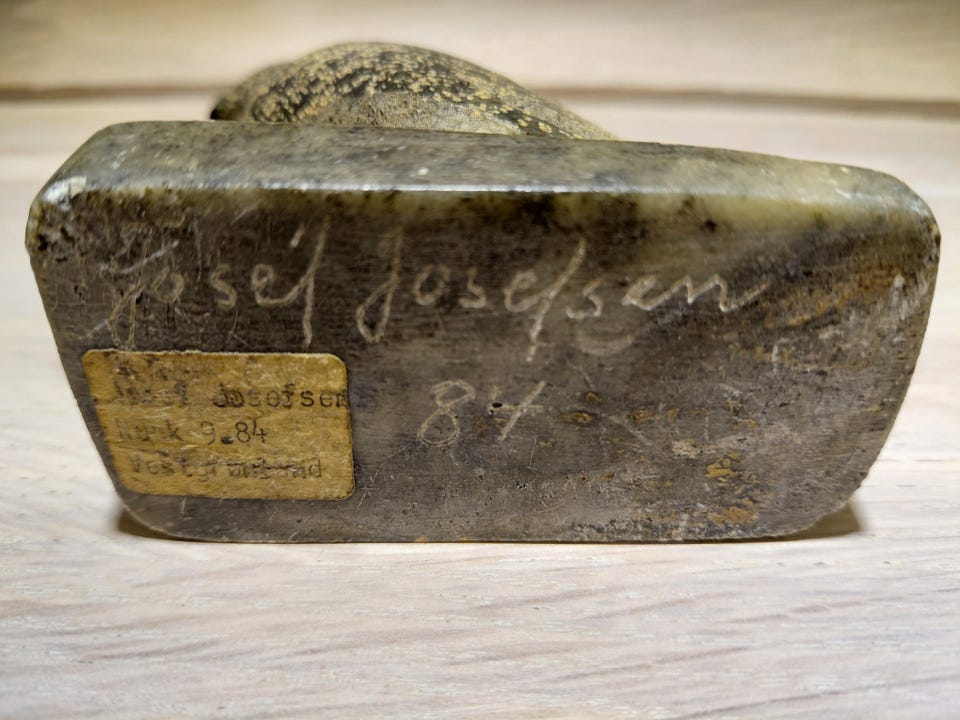 Josef Josefsen
84
Josefsen
9.84
Vestgrønland